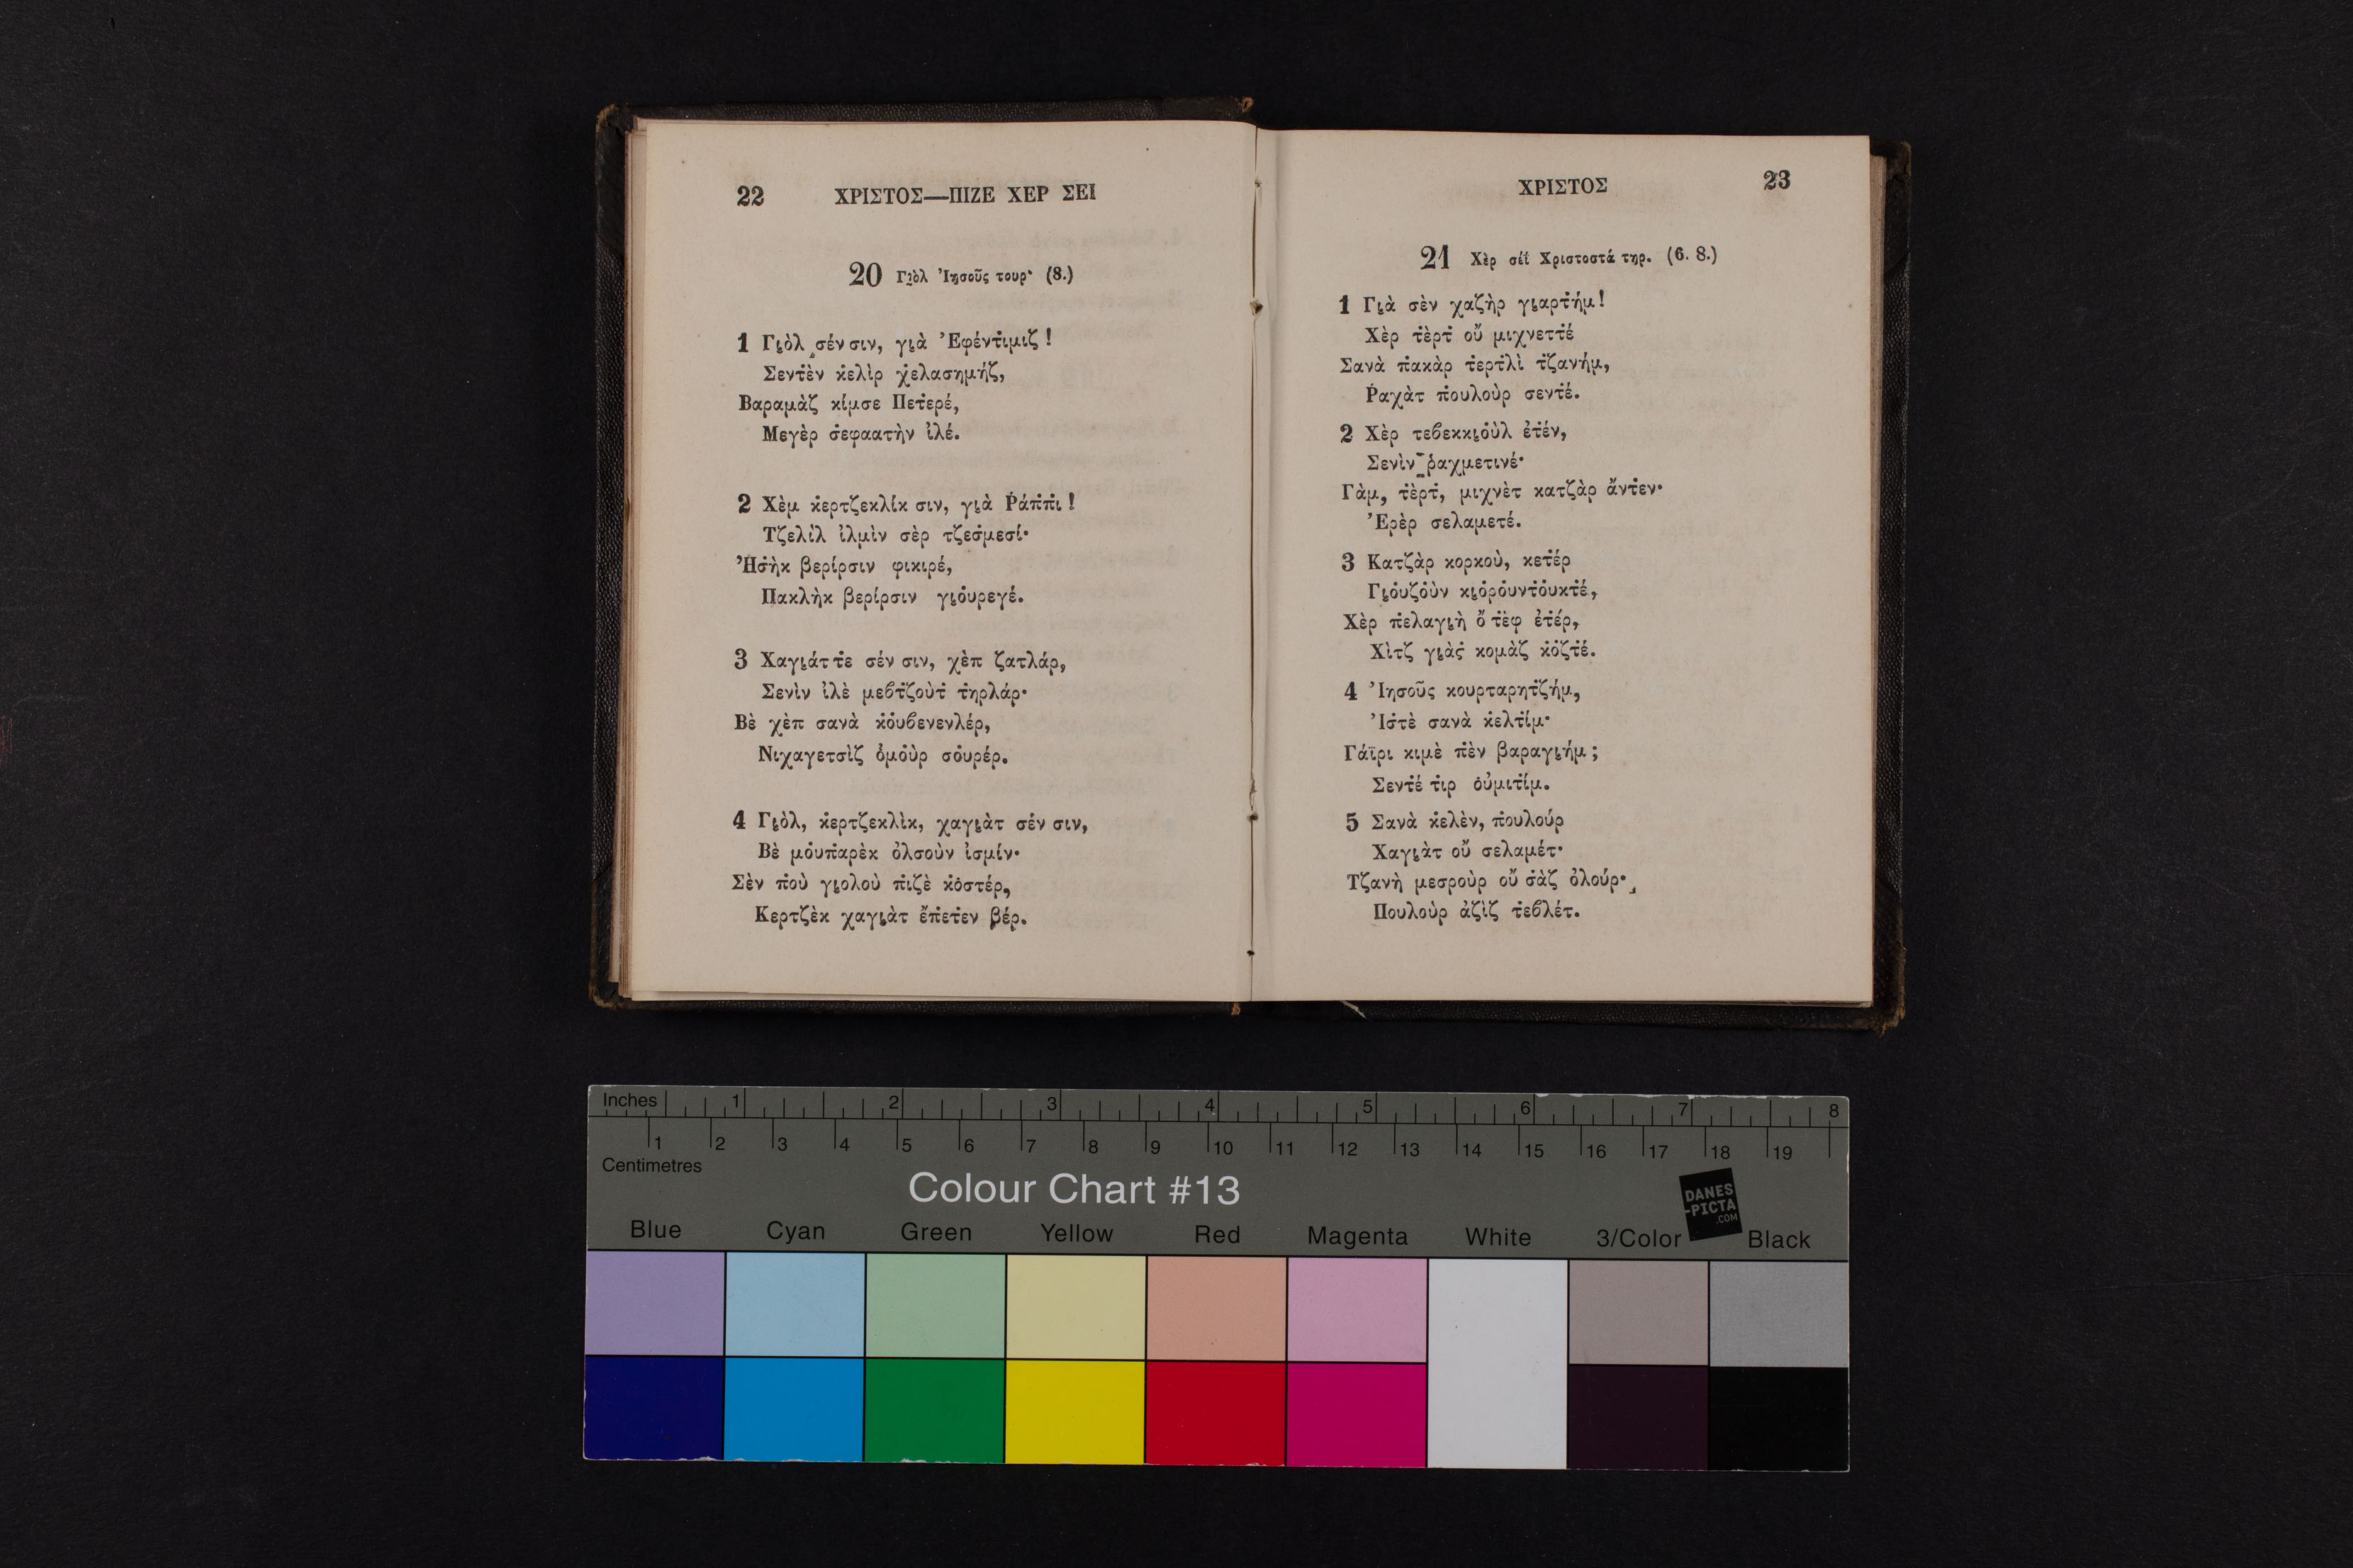 22 ΧΡΙΣΤΟΣ—ΠΙΖΕ ΧΕΡ ΣΕΙ
20 Γι̮ὸλ Ἰησοῦς τουρ· (8.)
1 Γι̮ὸλ σέν σιν, γι̮ὰ Ἐφέντ̇ιμιζ!
Σεντ̇ὲν κ̇ελὶρ χ̇ελασημήζ,
Βαραμὰζ κίμσε Πετ̇ερέ,
Μεγὲρ σ̇εφαατὴν ἰλέ.
2 Χὲμ κ̇ερτζεκλίκ σιν, γι̮ὰ Ῥάπ̇π̇ι!
Τζελὶλ ἰλμὶν σὲρ τζεσ̇μεσί·
Ἠσ̇ὴκ βερίρσιν φικιρέ,
Πακλὴκ βερίρσιν γι̮ο̇υρεγέ.
3 Χαγι̮άτ τ̇ε σέν σιν, χὲπ ζατλάρ,
Σενὶν ἰλὲ μεϐτ̇ζοὺτ̇ τ̇ηρλάρ·
Βὲ χὲπ σανὰ κ̇ο̇υϐενενλέρ,
Νιχαγετσὶζ ὀμο̇ὺρ σο̇υρέρ.
4 Γι̮ὸλ, κ̇ερτζεκλὶκ, χαγι̮ὰτ σέν σιν,
Βὲ μο̇υπ̇αρὲκ ὀλσοὺν ἰσμίν·
Σὲν π̇οὺ γι̮ολοὺ π̇ιζὲ κ̇ο̇στέρ,
Κερτζὲκ χαγι̮ὰτ ἔπ̇ετ̇εν βέρ.
ΧΡΙΣΤΟΣ 23
21 Χὲρ σ̇έϊ Χριστοστά τηρ. (6. 8.)
1 Γι̮ὰ σὲν χαζὴρ γι̮αρτ̇ήμ!
Χὲρ τ̇ὲρτ̇ οὔ μιχνεττ̇έ
Σανὰ π̇ακὰρ τ̇ερτ̇λὶ τ̇ζανήμ,
Ῥαχὰτ π̇ουλοὺρ σεντ̇έ.
2 Χὲρ τεϐεκκι̮ο̇ὺλ ἐτ̇έν,
Σενὶν ῥαχμετινέ·
Γὰμ, τ̇ὲρτ̇, μιχνὲτ κατζὰρ ἄντ̇εν·
Ἐρὲρ σελαμετέ.
3 Κατζὰρ κορκοὺ, κετ̇έρ
Γι̮ο̇υζο̇ὺν κι̮ο̇ρο̇υντ̇ο̇υκτ̇έ,
Χὲρ π̇ελαγι̮ὴ ὄ τ̇ὲφ ἐτ̇έρ,
Χὶτζ γι̮ὰσ̇ κομὰζ κ̇ο̇ζτ̇έ.
4 Ἰησοῦς κουρταρητ̇ζήμ,
Ἰσ̇τὲ σανὰ κ̇ελτ̇ίμ·
Γάϊρι κιμὲ π̇ὲν βαραγι̮ήμ;
Σεντ̇έ τιρ ο̇ὐμιτ̇ίμ.
5 Σανὰ κ̇ελὲν, π̇ουλούρ
Χαγι̮ὰτ οὔ σελαμέτ·
Τζανὴ μεσροὺρ οὔ σ̇ὰζ ὀλούρ·
Πουλοὺρ ἀζὶζ τ̇εϐλέτ.
Inches 1 2 3 4 5 6 7 8
1 2 3 4 5 6 7 8 9 10 11 12 13 14 15 16 17 18 19
Centimetres
Colour Chart #13
DANES
-PICTA
.COM
Blue Cyan Green Yellow Red Magenta White 3/Color Black